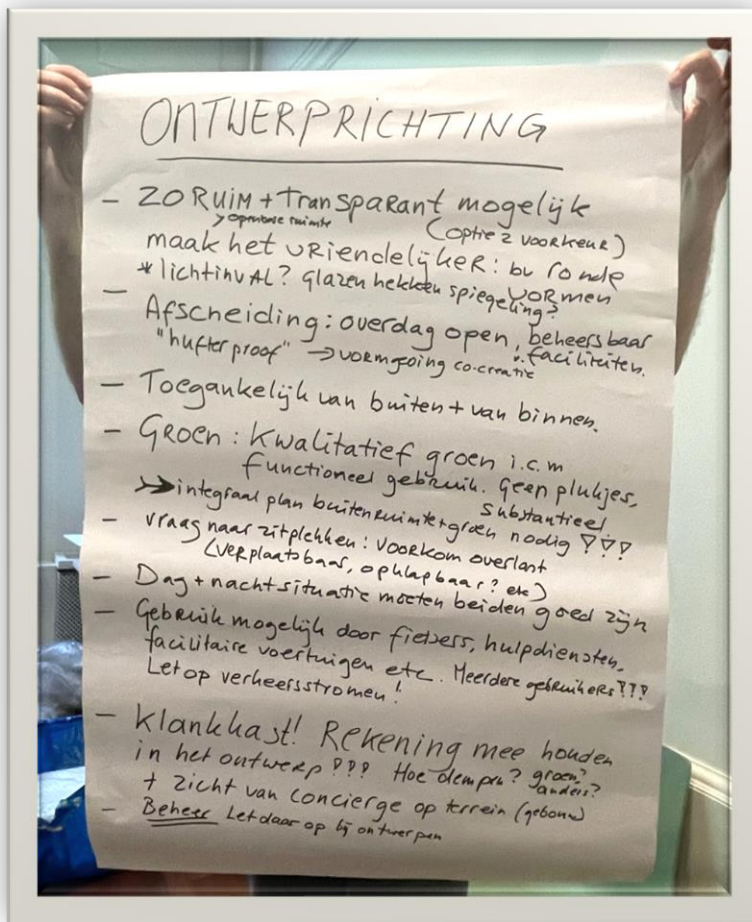 ONTWERPRICHTING
- ZO RUIM + TRANSPARANT mogelijk
> openbare ruimte (optie 2 voorkeur)
maak het vriendelijker: bv ronde
vormen
* lichtinval? Glazen hekken spiegeling?
- Afscheiding: overdag open, beheersbaar
"hufterproof" → vormgeving co-creatie v. faciliteiten.
- Toegankelijk van buiten + van binnen.
- Groen: Kwalitatief groen i.c.m
functioneel gebruik. Geen plukjes,
substantieel
→ integraal plan buitenruimte+groen nodig !!!
- vraag naar zitplekken: voorkom overlast
(verplaatsbaar, opklapbaar? etc)
- Dag + nachtsituatie moeten beiden goed zijn
- Gebruik mogelijk door fietsers, hulpdiensten,
facilitaire voertuigen etc. Meerdere gebruikers!!!
Let op verkeersstromen!
- Klankkast! Rekening mee houden
in het ontwerp!!! Hoe dempen? groen?
anders?
+ zicht van concierge op terrein (gebouw)
- Beheer Let daar op bij ontwerpen